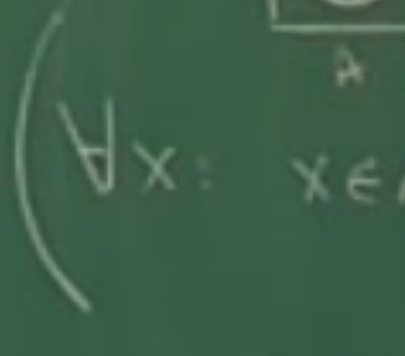 A
(∀x: x∈